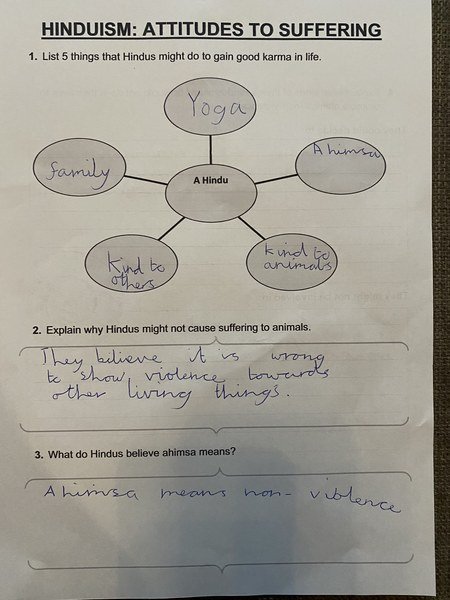 HINDUISM: ATTITUDES TO SUFFERING
1. List 5 things that Hindus might do to gain good karma in life.
Yoga
family
Ahimsa
A Hindu
Kind to
others
Kind to
animals
2. Explain why Hindus might not cause suffering to animals.
They believe it is wrong
to show violence towards
other living things.
3. What do Hindus believe ahimsa means?
Ahimsa means non-violence